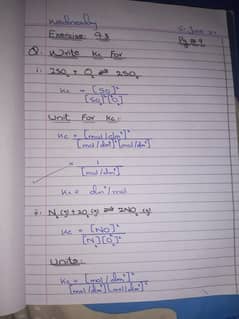 Wednesday
Exercise 9.3
Pg # 9
Q Write Kc For
i. 2SO₂ + O₂ ⇌ 2SO₃
Kc = [SO₃]²
[SO₂]²[O₂]
Unit For Kc:
Kc = [mol/dm³]²
[mol/dm³]²[mol/dm³]
= 1
[mol/dm³]
Kc = dm³/mol
ii. N₂(g) + 2O₂(g) ⇌ 2NO₂(g)
Kc = [NO₂]²
[N₂][O₂]²
Units:-
Kc = [mol/dm³]²
[mol/dm³][mol/dm³]²